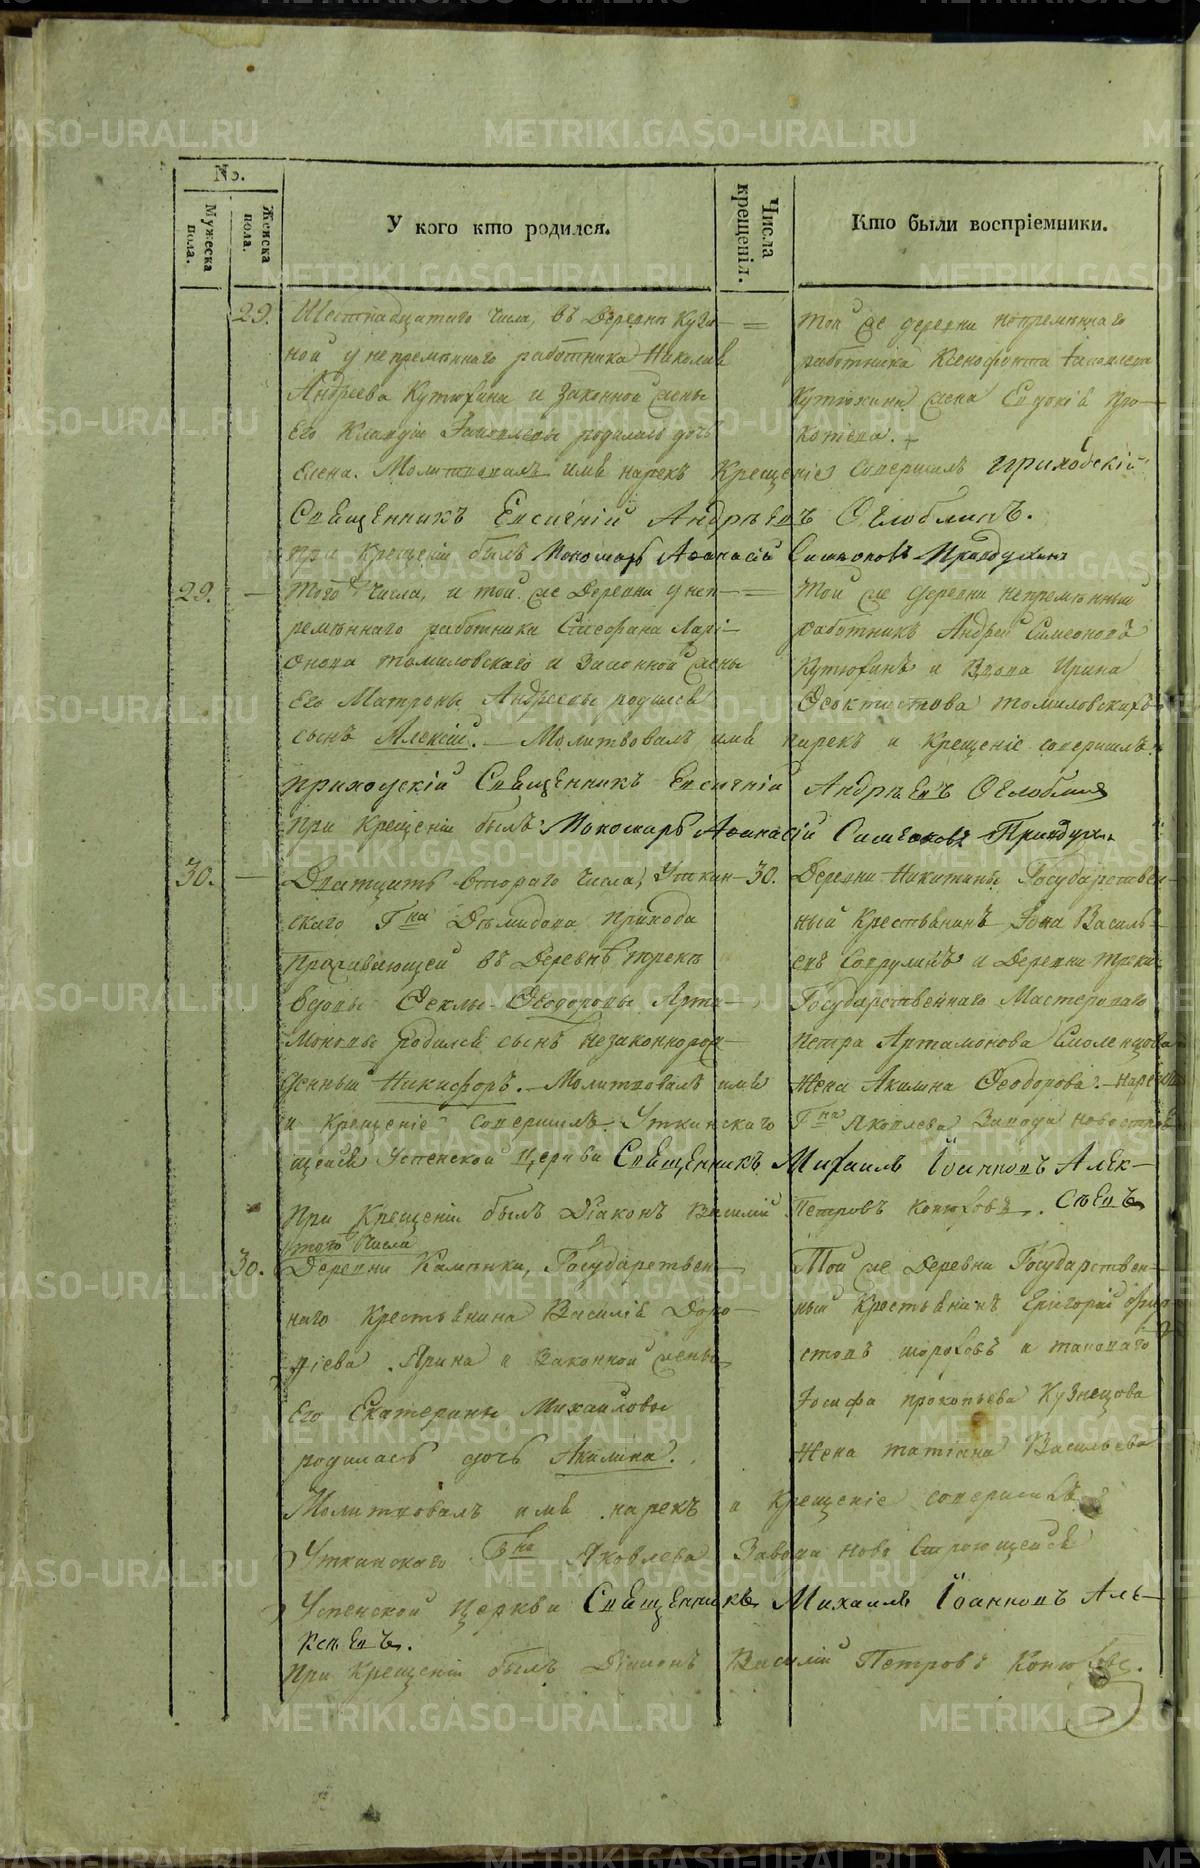 No.
Мужеска пола.
Женска пола.
У кого кто родился.
Числа крещенія.
Кто были воспріемники.
29. Шестнадцатаго числа, въ Деревнѣ Кузи- =
ной у непремѣннаго работника Николая
Андреева Кутюхина и законной жены
Его Клавдіи родилась дочь
Елена. Молитвовалъ имя нарекъ Крещеніе совершилъ приходскій
Священникъ Евсигній Андрѣевъ Оглоблинъ.
При Крещеніи былъ Пономарь Аѳанасій Симеоновъ Правдухинъ
той же деревни непремѣннаго
работника Ксенофонта
Кутюхина жена Евдокія Про-
копіева.
29. — того Числа, и той же Деревни у неп- =
ремѣннаго работника Стефана Ларі-
онова томиловскаго и Законной жены
Его Матрены Андреевы родился
сынъ Алексій. — Молитвовалъ имя нарекъ и Крещеніе совершилъ
приходскій Священникъ Евсигній Андрѣевъ Оглоблинъ
При Крещеніи былъ Пономарь Аѳанасій Симеоновъ Правдухинъ
Той же деревни непремѣнный
работникъ Андрей Симеоновъ
Кутюхинъ и Вдова Ирина
Ѳеоктистова томиловскихъ
30. — Дватцать втораго числа, Уткин- 30.
скаго Гна Демидова прихода
Проживающей въ Деревнѣ трекѣ
вдовы Ѳеклы Ѳеодоровы Арта-
моновы родился сынъ незаконнорож-
денный Никифоръ. — Молитвовалъ имя нарекъ
и крещеніе совершилъ Уткинскаго Гна Яковлева Завода новостроя
щейся Успенской Церкви Священникъ Михаилъ Іоанновъ Алек-
При Крещеніи былъ Діаконъ Василій Петровъ Конюховъ. сѣевъ
Деревни Никитины Государствен-
ный Крестьянинъ Іона Василь-
евъ и Деревни треки
Государственнаго Мастероваго
Петра Артамонова Смоленцова
Жена Акилина Ѳеодорова.
того Числа
30. Деревни Каменки, Государствен-
наго Крестьянина Василія Доро-
ѳіева Ярина и Законной жены
Его Екатерины Михайловы
родилась дочь Акилина.
Молитвовалъ имя нарекъ и Крещеніе совершилъ
Уткинскаго Гна Яковлева Завода ново строющейся
Успенской Церкви Священникъ Михаилъ Іоанновъ Але-
ксѣевъ.
При Крещеніи былъ Діаконъ Василій Петровъ Конюховъ.
Той же Деревни Государствен-
ный Крестьянинъ Григорій
стовъ шороховъ и таковаго
Іосифа прокопьева Кузнецова
Жена татіана Васильева
METRIKI.GASO-URAL.RU